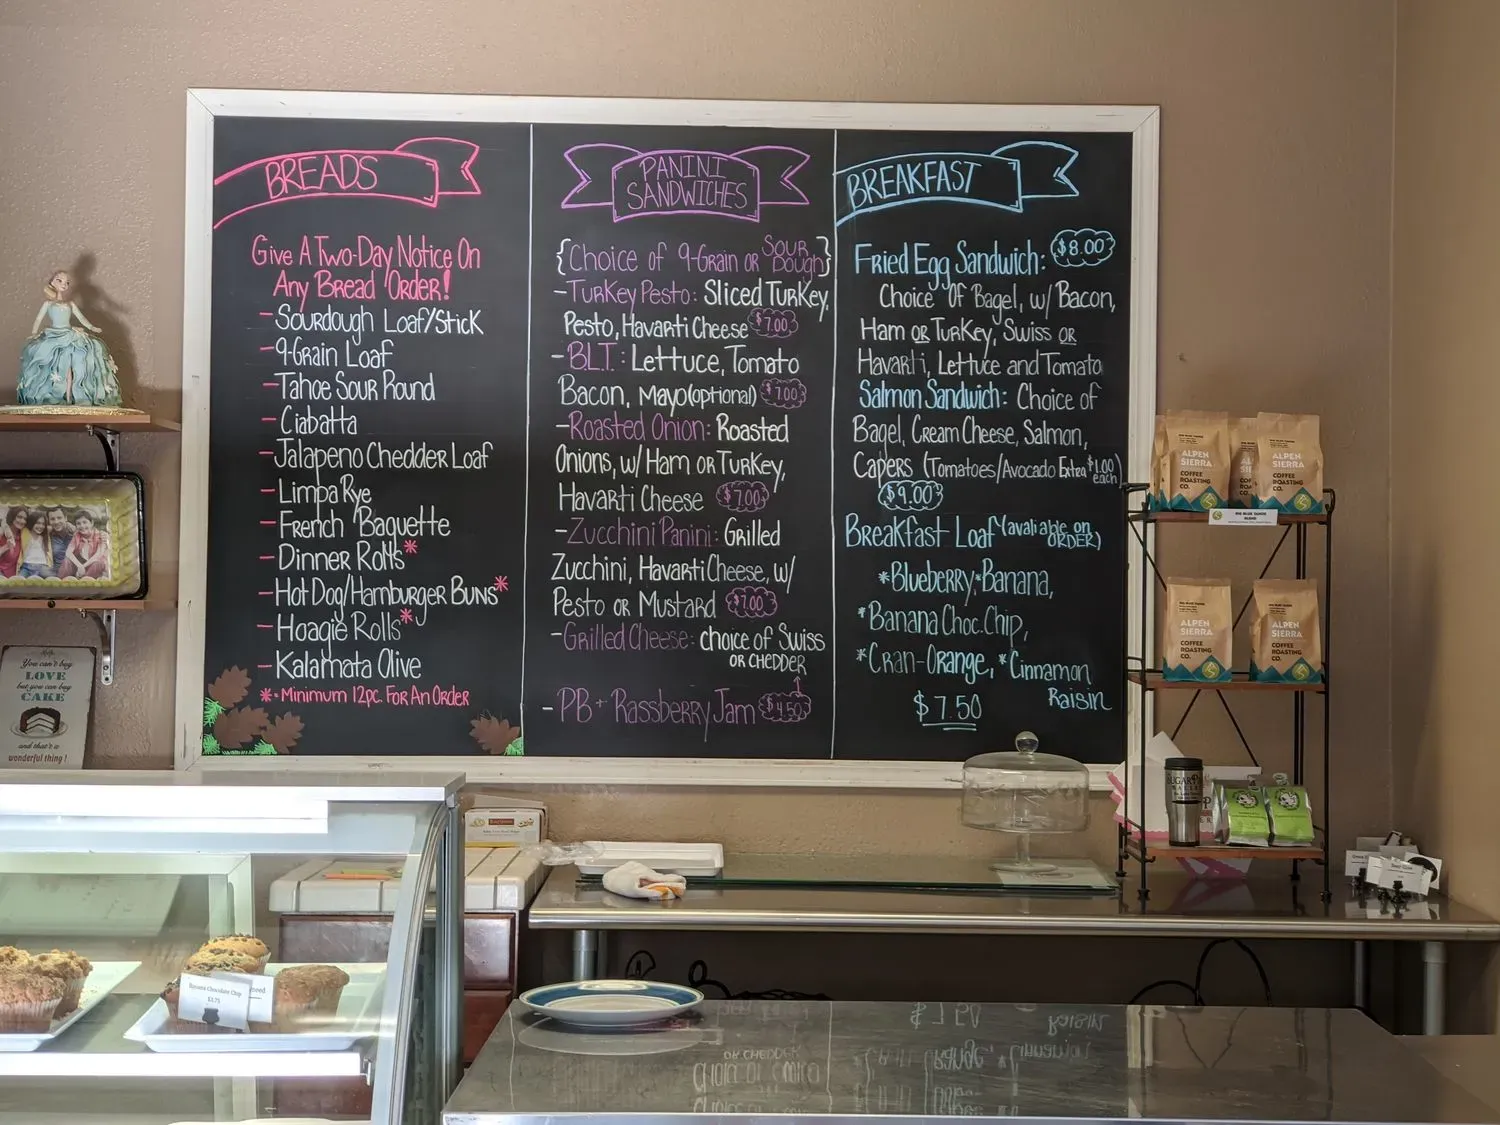 BREADS
Give A Two-Day Notice On
Any Bread Order!
- Sourdough Loaf/Stick
- 9-Grain Loaf
- Tahoe Sour Round
- Ciabatta
- Jalapeno Chedder Loaf
- Limpa Rye
- French Baguette
- Dinner Rolls*
- Hot Dog/Hamburger Buns*
- Hoagie Rolls*
- Kalamata Olive
*- Minimum 12pc. For An Order
PANINI
SANDWICHES
{Choice of 9-Grain or Sour Dough}
- Turkey Pesto: Sliced Turkey,
Pesto, Havarti Cheese $7.00
- B.L.T.: Lettuce, Tomato
Bacon, Mayo (optional) $7.00
- Roasted Onion: Roasted
Onions, w/ Ham or Turkey,
Havarti Cheese $7.00
- Zucchini Panini: Grilled
Zucchini, Havarti Cheese, w/
Pesto or Mustard $7.00
- Grilled Cheese: choice of Swiss
or chedder
- PB + Rassberry Jam $4.50
BREAKFAST
Fried Egg Sandwich: $8.00
Choice Of Bagel, w/ Bacon,
Ham or Turkey, Swiss or
Havarti, Lettuce and Tomato
Salmon Sandwich: Choice of
Bagel, Cream Cheese, Salmon,
Capers (Tomatoes/Avocado Extra $1.00 each)
$9.00
Breakfast Loaf (avaliable on ORDER)
*Blueberry, *Banana,
*Banana Choc. Chip,
*Cran-Orange, *Cinnamon
Raisin
$7.50
You can't buy
LOVE
but you can buy
CAKE
and that's a
wonderful thing!
ALPEN
SIERRA
COFFEE
ROASTING
CO.
ALPEN
SIERRA
COFFEE
ROASTING
CO.
BIG BLUE TAHOE
BLEND
ALPEN
SIERRA
COFFEE
ROASTING
CO.
ALPEN
SIERRA
COFFEE
ROASTING
CO.
Banana Chocolate Chip
$3.75